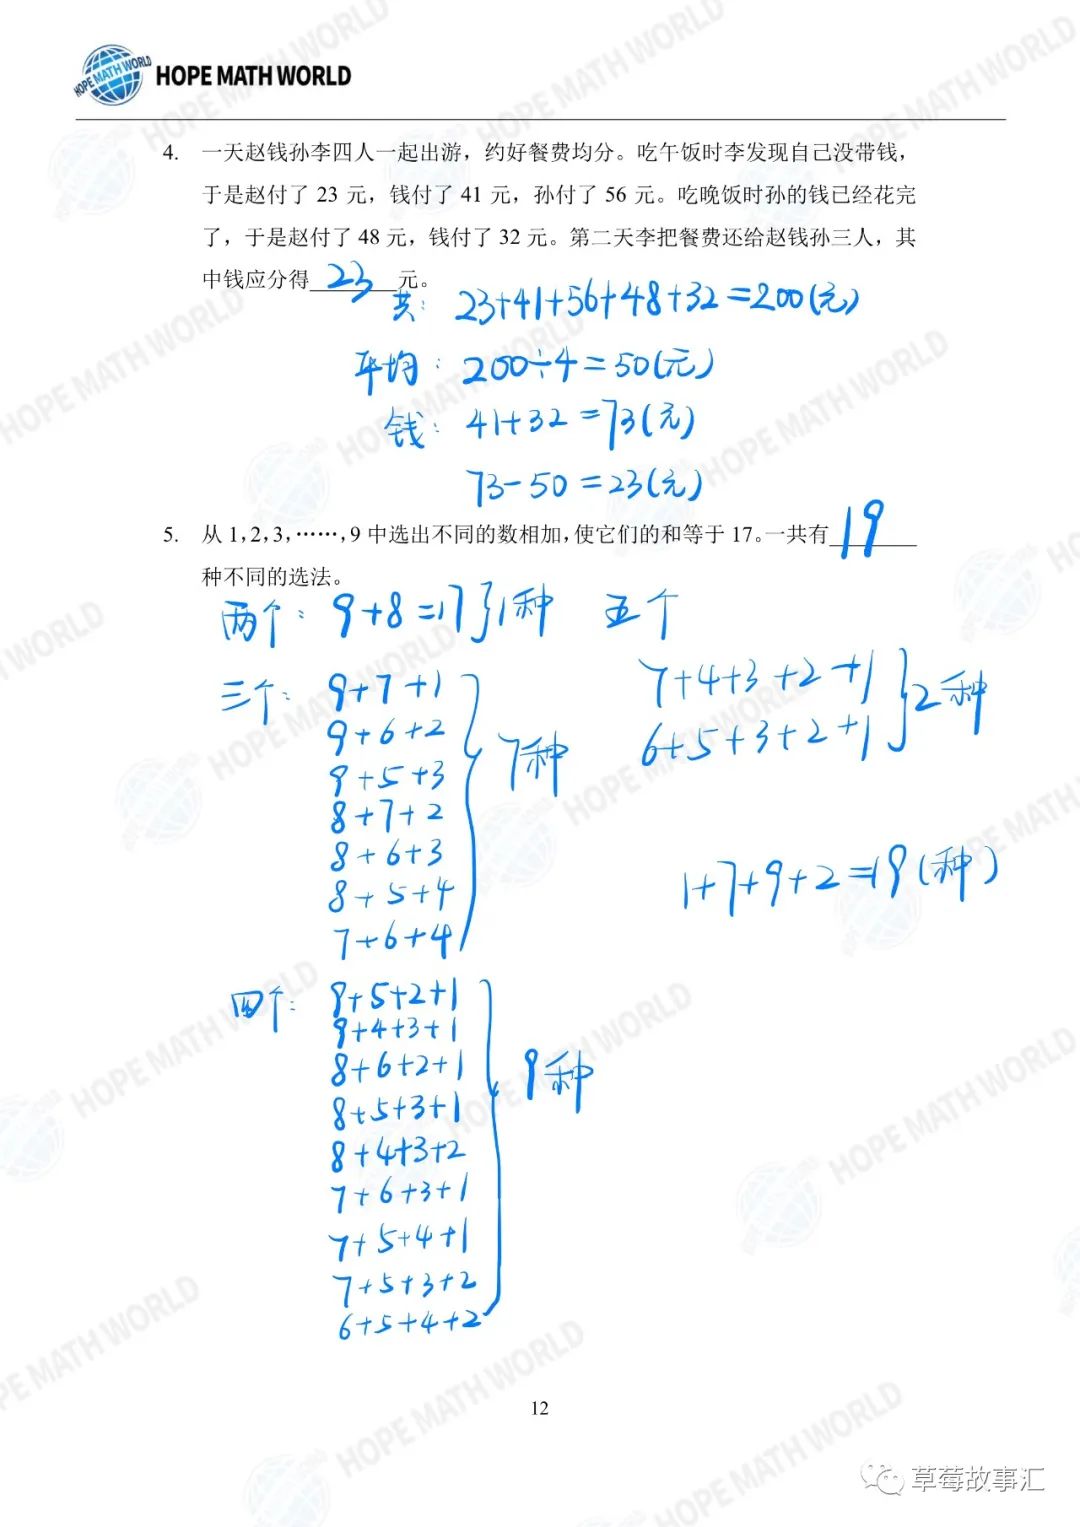 HOPE MATH WORLD
4. 一天赵钱孙李四人一起出游，约好餐费均分。吃午饭时李发现自己没带钱，
于是赵付了 23 元，钱付了 41 元，孙付了 56 元。吃晚饭时孙的钱已经花完
了，于是赵付了 48 元，钱付了 32 元。第二天李把餐费还给赵钱孙三人，其
中钱应分得 23 元。
共：23+41+56+48+32=200(元)
平均：200÷4=50(元)
钱：41+32=73(元)
73-50=23(元)
5. 从 1,2,3,……,9 中选出不同的数相加，使它们的和等于 17。一共有 19
种不同的选法。
两个：9+8=17}1种
三个：9+7+1
9+6+2
9+5+3
8+7+2
8+6+3
8+5+4
7+6+4
7种
四个：9+5+2+1
9+4+3+1
8+6+2+1
8+5+3+1
8+4+3+2
7+6+3+1
7+5+4+1
7+5+3+2
6+5+4+2
9种
五个
7+4+3+2+1
6+5+3+2+1
2种
1+7+9+2=19(种)
12
草莓故事汇